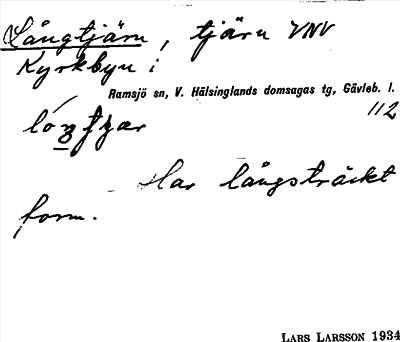 Långtjärn, tjärn VNV
Kyrkbyn i
Ramsjö sn, V. Hälsinglands domsagas tg, Gävleb. l.
112
Har långsträckt
form.
LARS LARSSON 1934